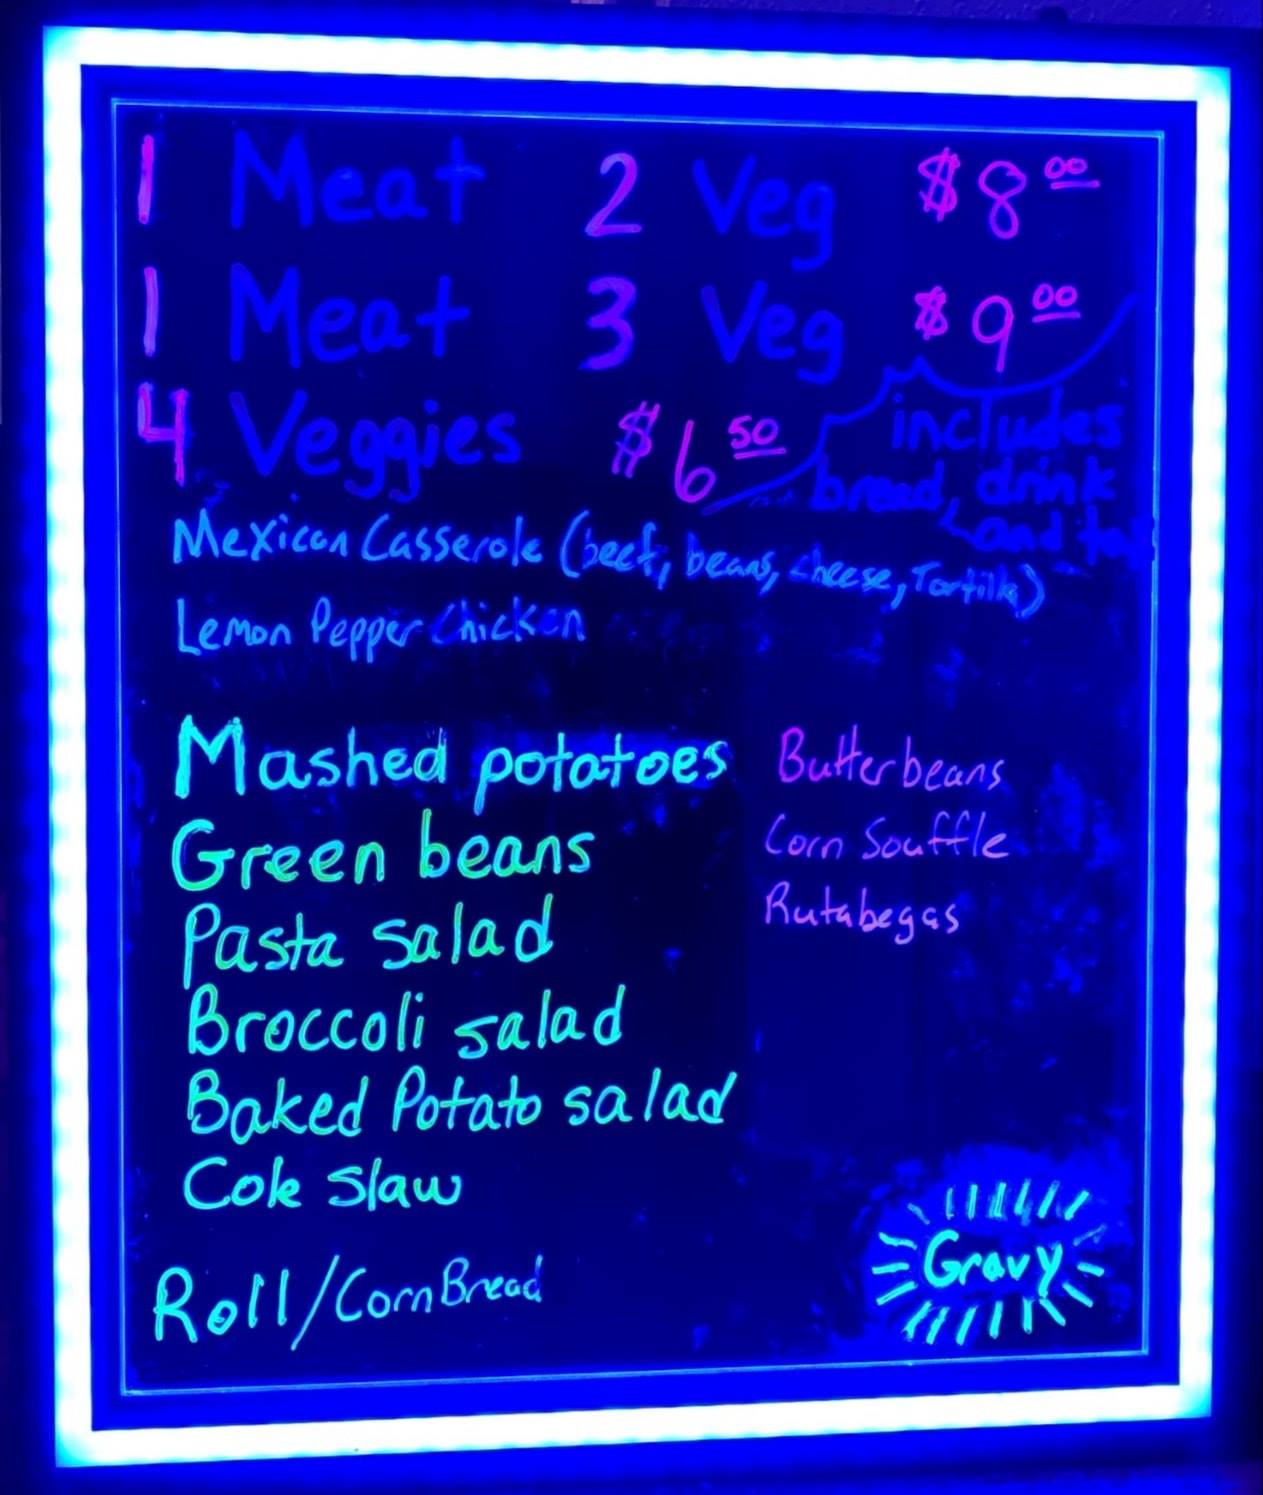 1 Meat 2 Veg $8 00
1 Meat 3 Veg $9 00
4 Veggies $6 50
includes
bread, drink
and tax
Mexican Casserole (beef, beans, cheese, Tortilla)
Lemon Pepper Chicken
Mashed potatoes
Green beans
Pasta salad
Broccoli salad
Baked Potato salad
Cole Slaw
Butterbeans
Corn Souffle
Rutabegas
Roll/Corn Bread
Gravy